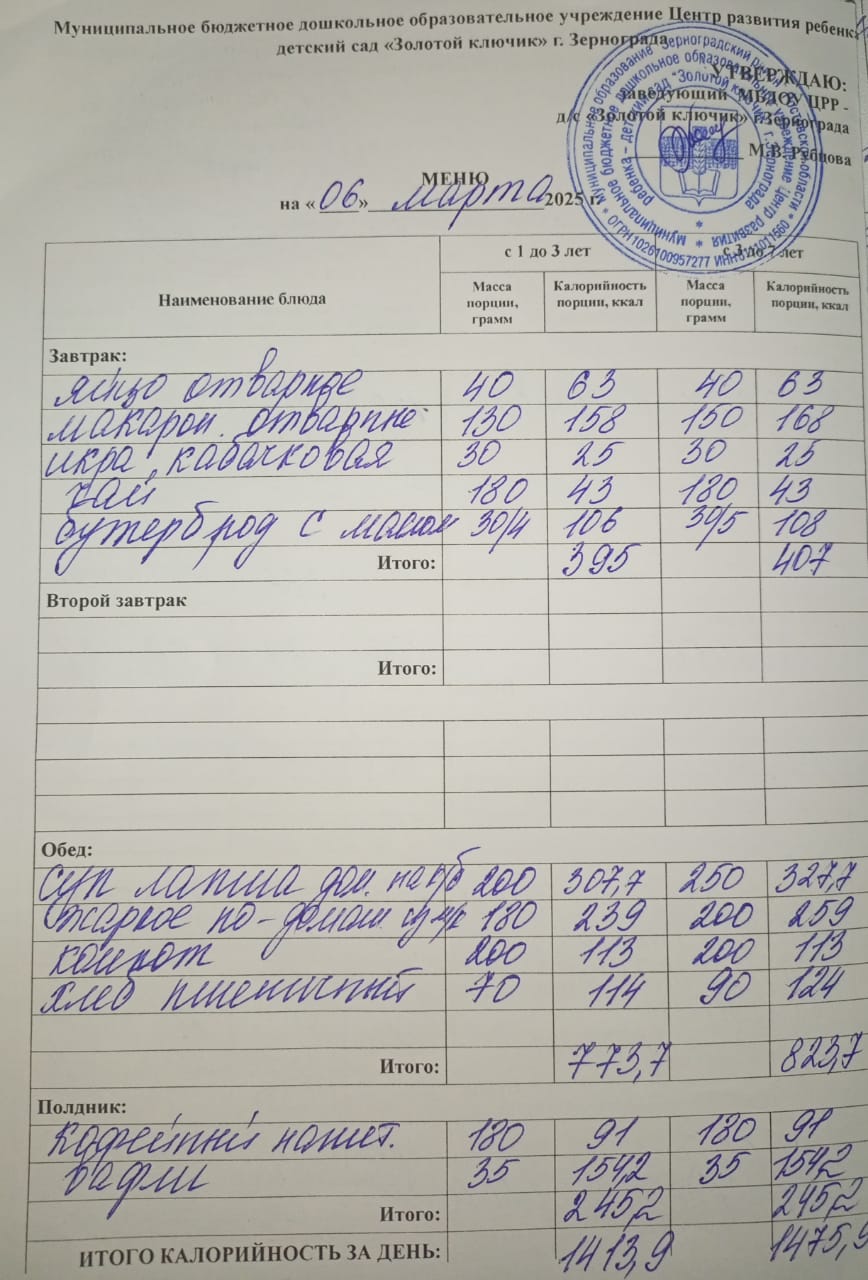 Муниципальное бюджетное дошкольное образовательное учреждение Центр развития ребенка
детский сад «Золотой ключик» г. Зернограда
УТВЕРЖДАЮ:
Заведующий МБДОУ ЦРР -
д/с «Золотой ключик» г. Зернограда
М.В. Рубцова
МЕНЮ
на «06» марта 2025 г.
Наименование блюда с 1 до 3 лет с 3 до 7 лет
Масса порции, грамм Калорийность порции, ккал Масса порции, грамм Калорийность порции, ккал
Завтрак:
яйцо отварное 40 63 40 63
макарон. отварные 130 158 150 168
икра кабачковая 30 25 30 25
чай 180 43 180 43
бутерброд с маслом 30/4 106 30/5 108
Итого: 395 407
Второй завтрак
Итого:
Обед:
суп лапша дом. на к/б 200 307,7 250 327,7
жаркое по-домаш. 180 239 200 259
компот 200 113 200 113
хлеб пшеничный 70 114 90 124
Итого: 773,7 823,7
Полдник:
кофейный напит. 180 91 180 91
вафли 35 154,2 35 154,2
Итого: 245,2 245,2
ИТОГО КАЛОРИЙНОСТЬ ЗА ДЕНЬ: 1413,9 1475,9